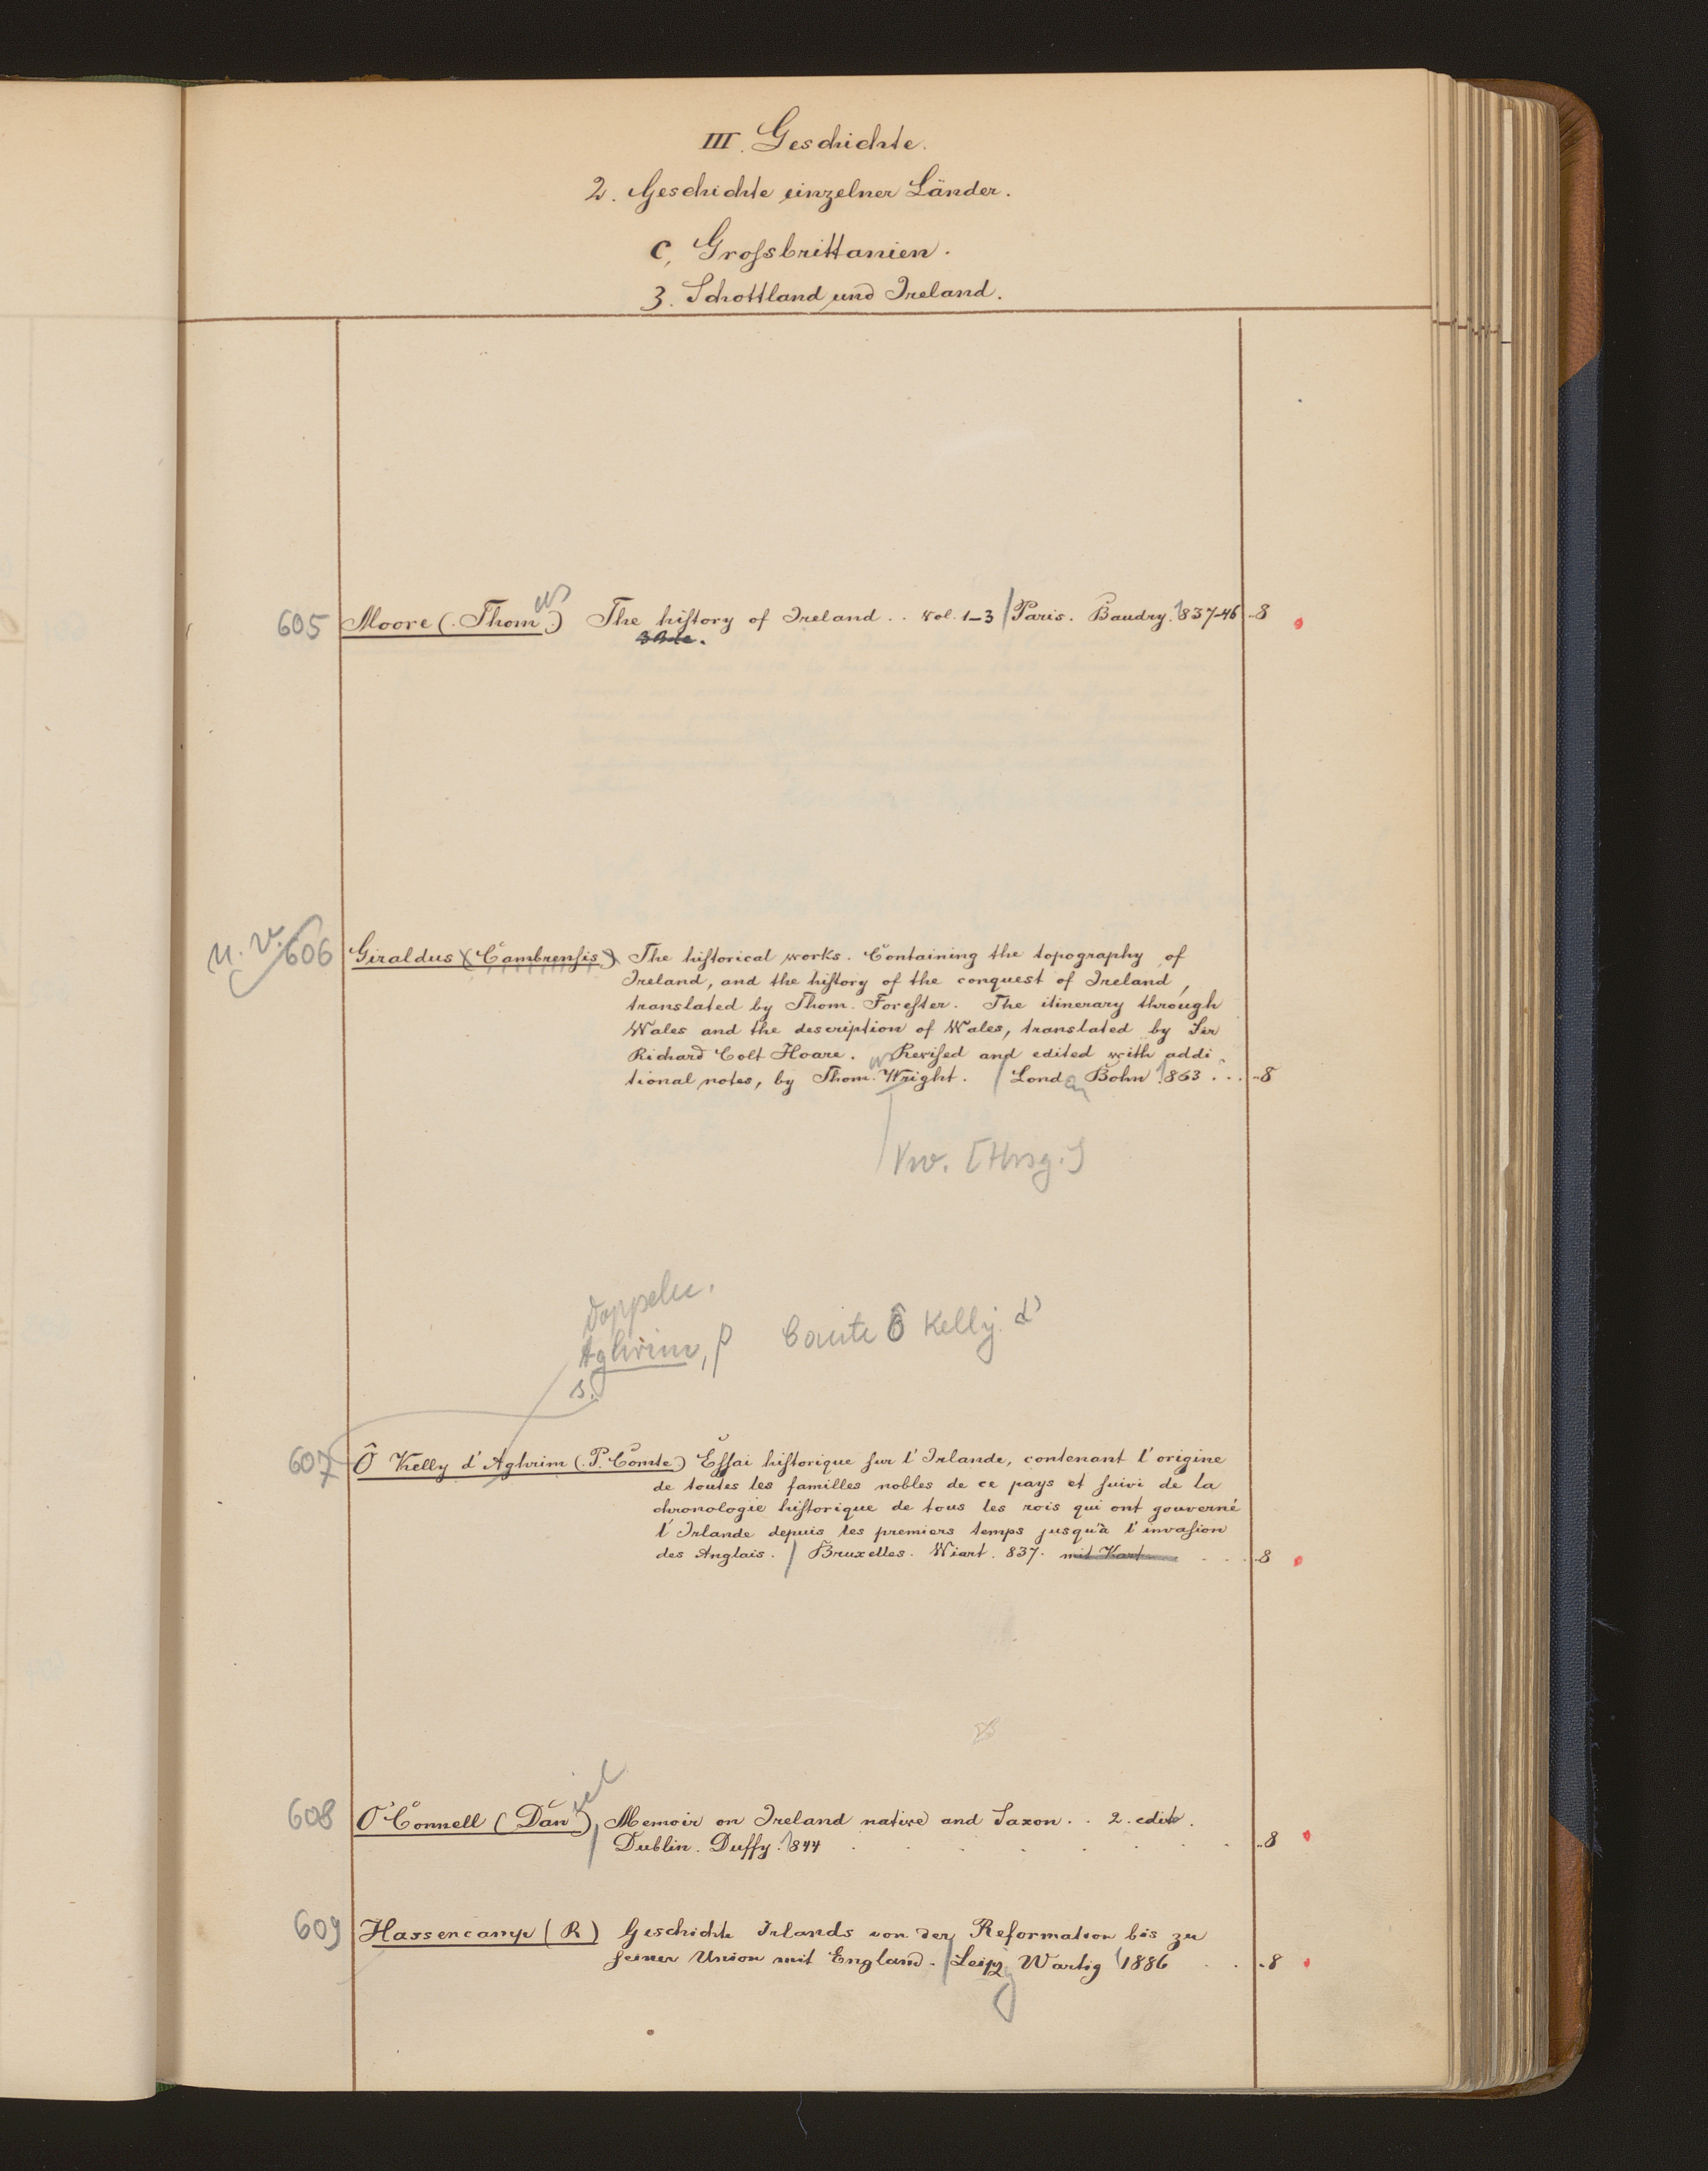 III. Geschichte.
2. Geschichte einzelner Länder.
c, Grossbrittanien.
3. Schottland und Ireland.
605 Moore (Thomas) The history of Ireland .. vol. 1-3 / Paris. Baudry. 1837-46 8
606 Giraldus (Cambrensis) The historical works. Containing the topography of
Ireland, and the history of the conquest of Ireland,
translated by Thom. Forester. The itinerary through
Wales and the description of Wales, translated by Sir
Richard Colt Hoare. Revised and edited with addi-
tional notes, by Thom. Wright. / London Bohn 1863 ... 8
[Hrsg.]
Aghrim, P Comte Ô Kelly d'
s.
607 Ô Kelly d'Aghrim (P. Comte) Essai historique sur l'Irlande, contenant l'origine
de toutes les familles nobles de ce pays et suivi de la
chronologie historique de tous les rois qui ont gouverné
l'Irlande depuis les premiers temps jusqu'à l'invasion
des Anglais. / Bruxelles. Wiart. 837. mit Kart 8
608 O'Connell (Daniel) Memoir on Ireland native and Saxon .. 2. edit.
Dublin. Duffy. 1844 8
609 Hassencamp (R) Geschichte Irlands von der Reformation bis zu
seiner Union mit England. / Leipzig Wartig 1886 8